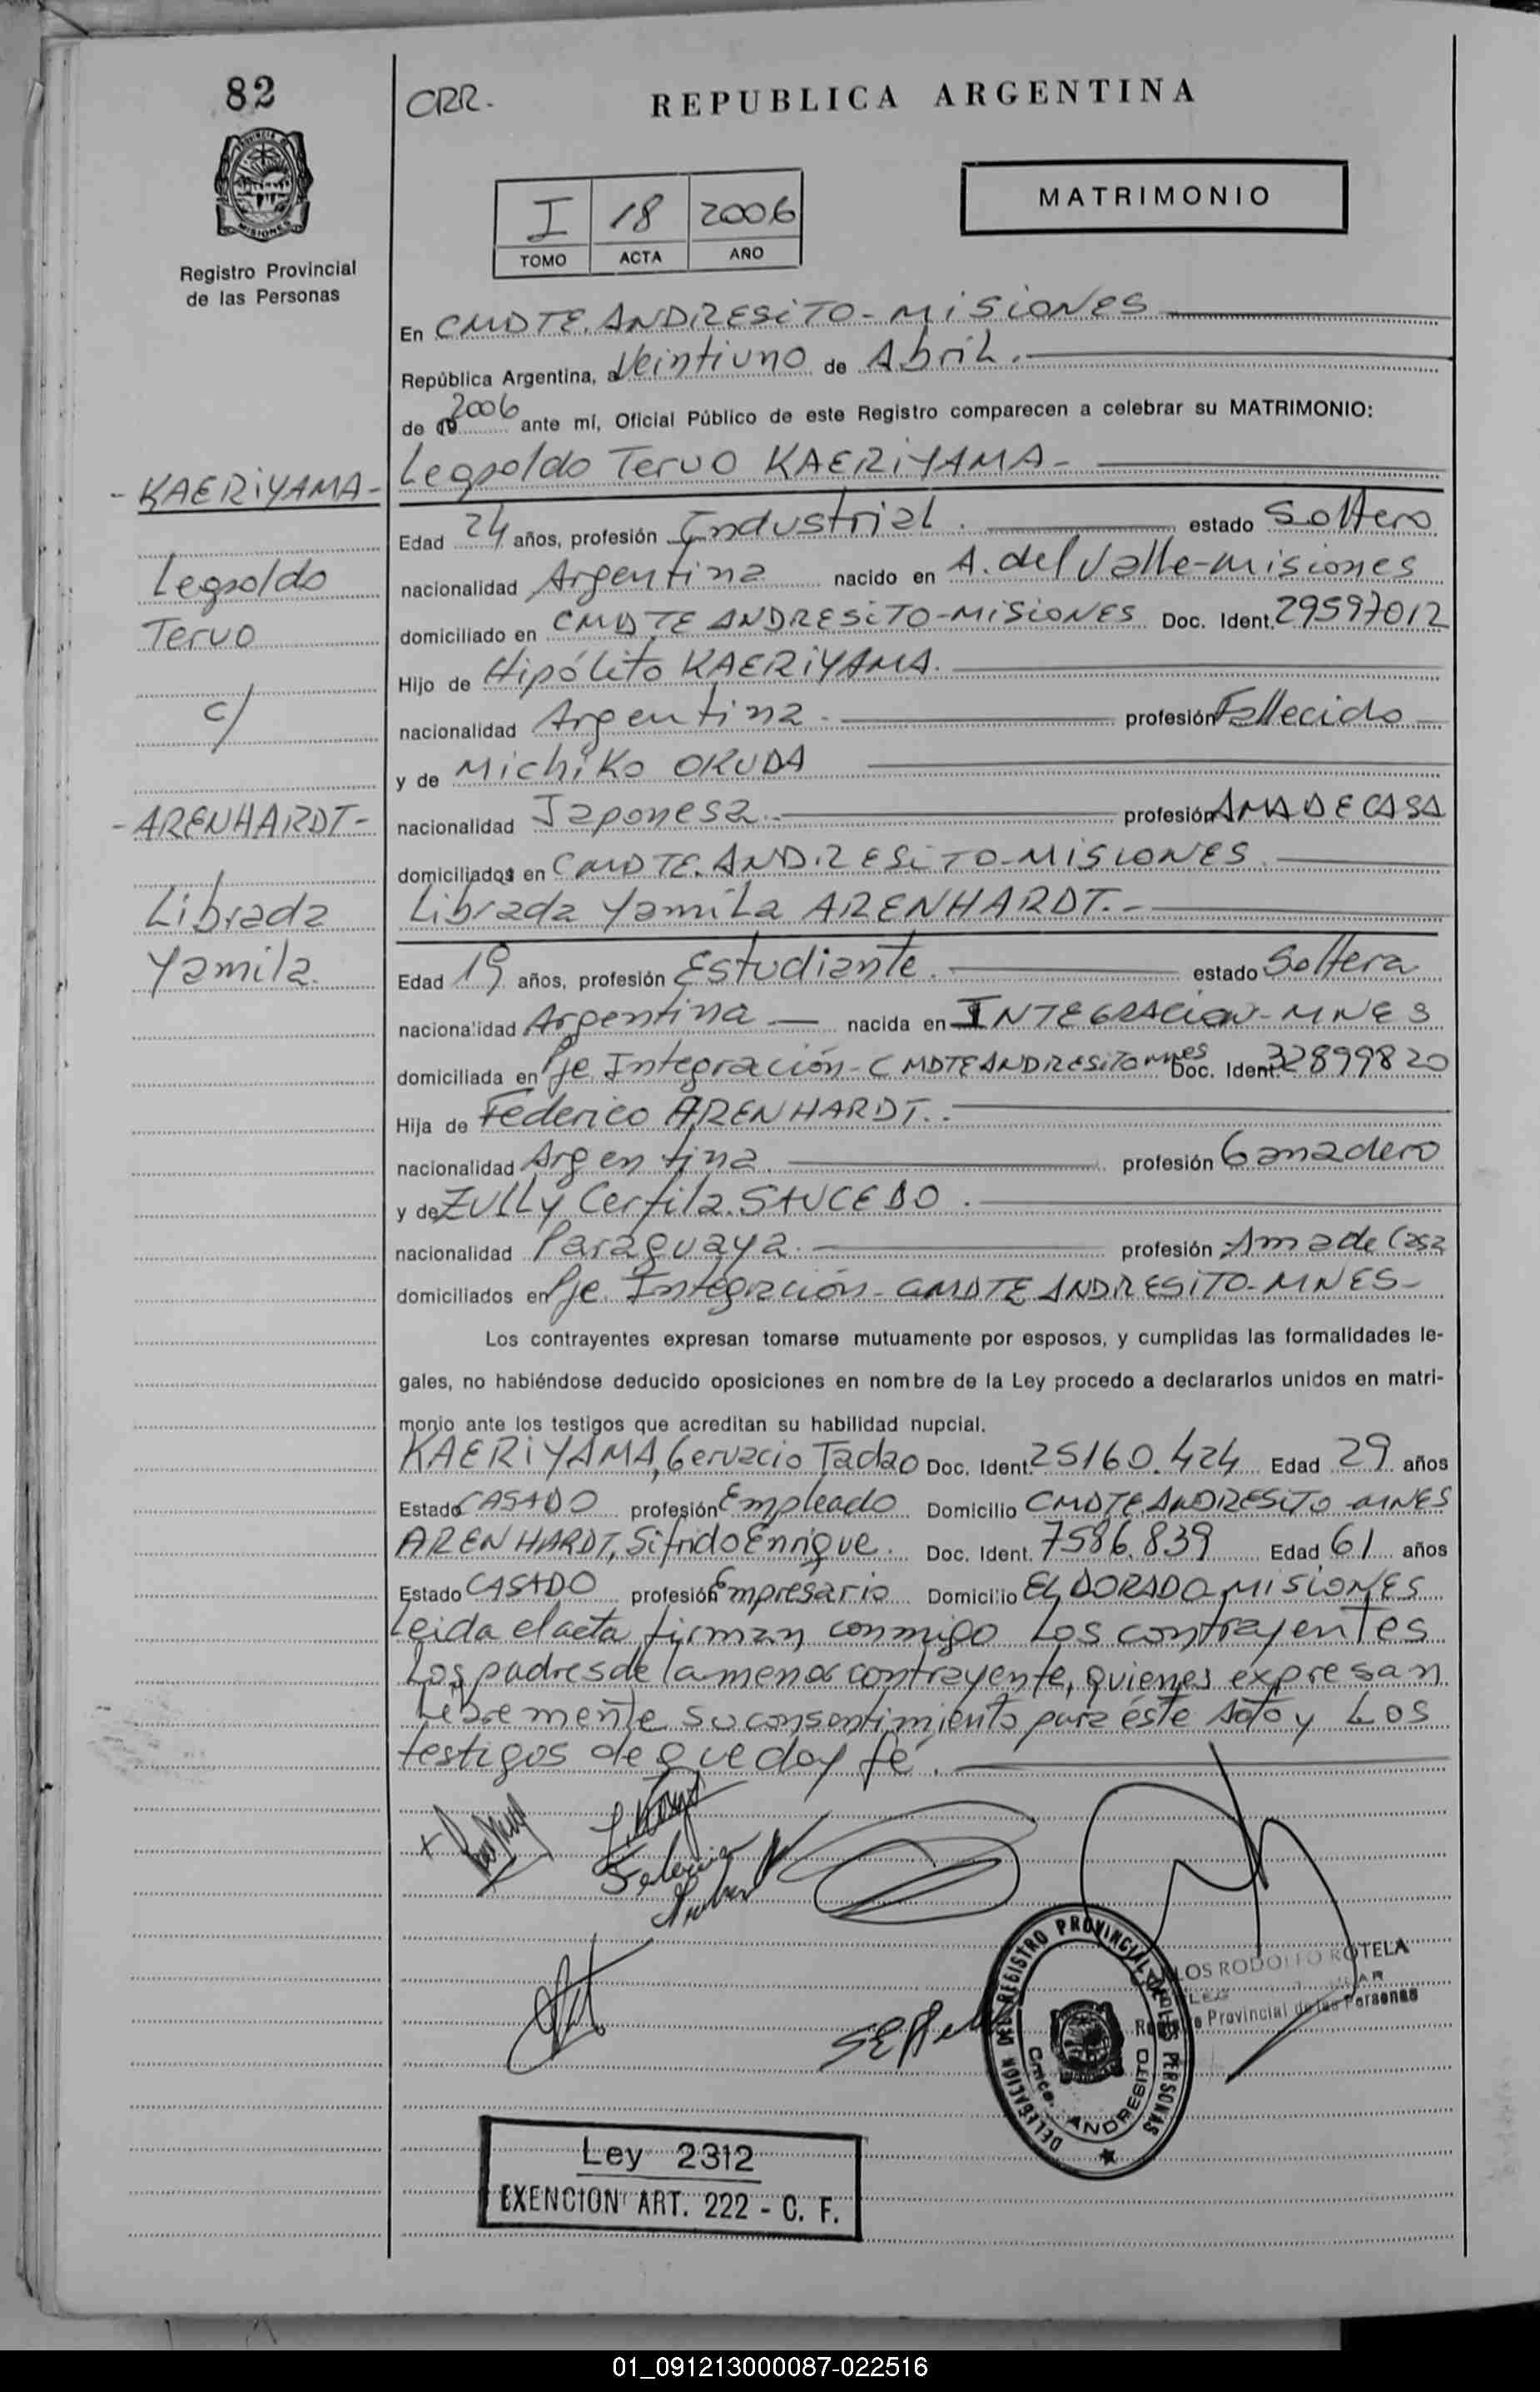 82
CRR.
REPUBLICA ARGENTINA
PROVINCIA DE
MISIONES
Registro Provincial
de las Personas
I 18 2006
TOMO ACTA AÑO
MATRIMONIO
En CMDTE. ANDRESITO - MISIONES
República Argentina, a Veintiuno de Abril.
de 2006 ante mí, Oficial Público de este Registro comparecen a celebrar su MATRIMONIO:
Leopoldo Teruo KAERIYAMA-
- KAERIYAMA -
Edad 24 años, profesión Industrial. estado Soltero
Leopoldo
nacionalidad Argentina nacido en A. del Valle-misiones
Teruo
domiciliado en CMDTE ANDRESITO-MISIONES Doc. Ident. 29597012
Hijo de Hipólito KAERIYAMA.
c/
nacionalidad Argentina - profesión Fallecido
y de Michiko OKUDA
- ARENHARDT -
nacionalidad Japonesa.- profesión AMA DE CASA
domiciliados en CMDTE. ANDRESITO-MISIONES
Librada
Librada Yamila ARENHARDT.-
Yamila.
Edad 19 años, profesión Estudiante. estado Soltera
nacionalidad Argentina nacida en INTEGRACION-MNES
domiciliada en Pje. Integración - CMDTE ANDRESITO mnes Doc. Ident. 32899820
Hija de Federico ARENHARDT.
nacionalidad Argentina. profesión Ganadero
y de ZULLY Cerfila. SAUCEDO.
nacionalidad Paraguaya. profesión Ama de Casa
domiciliados en Pje. Integración - CMDTE ANDRESITO-MNES-
Los contrayentes expresan tomarse mutuamente por esposos, y cumplidas las formalidades le-
gales, no habiéndose deducido oposiciones en nombre de la Ley procedo a declararlos unidos en matri-
monio ante los testigos que acreditan su habilidad nupcial.
KAERIYAMA, Gervacio Tadao Doc. Ident. 25160.424 Edad 29 años
Estado CASADO profesión Empleado Domicilio CMDTE ANDRESITO MNES
ARENHARDT, Sifrido Enrique. Doc. Ident. 7586.839 Edad 61 años
Estado CASADO profesión Empresario Domicilio ELDORADO-MISIONES
Leida el acta, firman conmigo Los contrayentes
Los padres de la menor contrayente, quienes expresan
Libremente su consentimiento para éste Acto y Los
testigos de que doy fé.
Federico
DELEGACION DEL REGISTRO PROVINCIAL DE LAS PERSONAS
ANDRESITO
LOS RODOLFO ROTELA
Provincial de las Personas
Ley 2312
EXENCION ART. 222 - C. F.
01_091213000087-022516